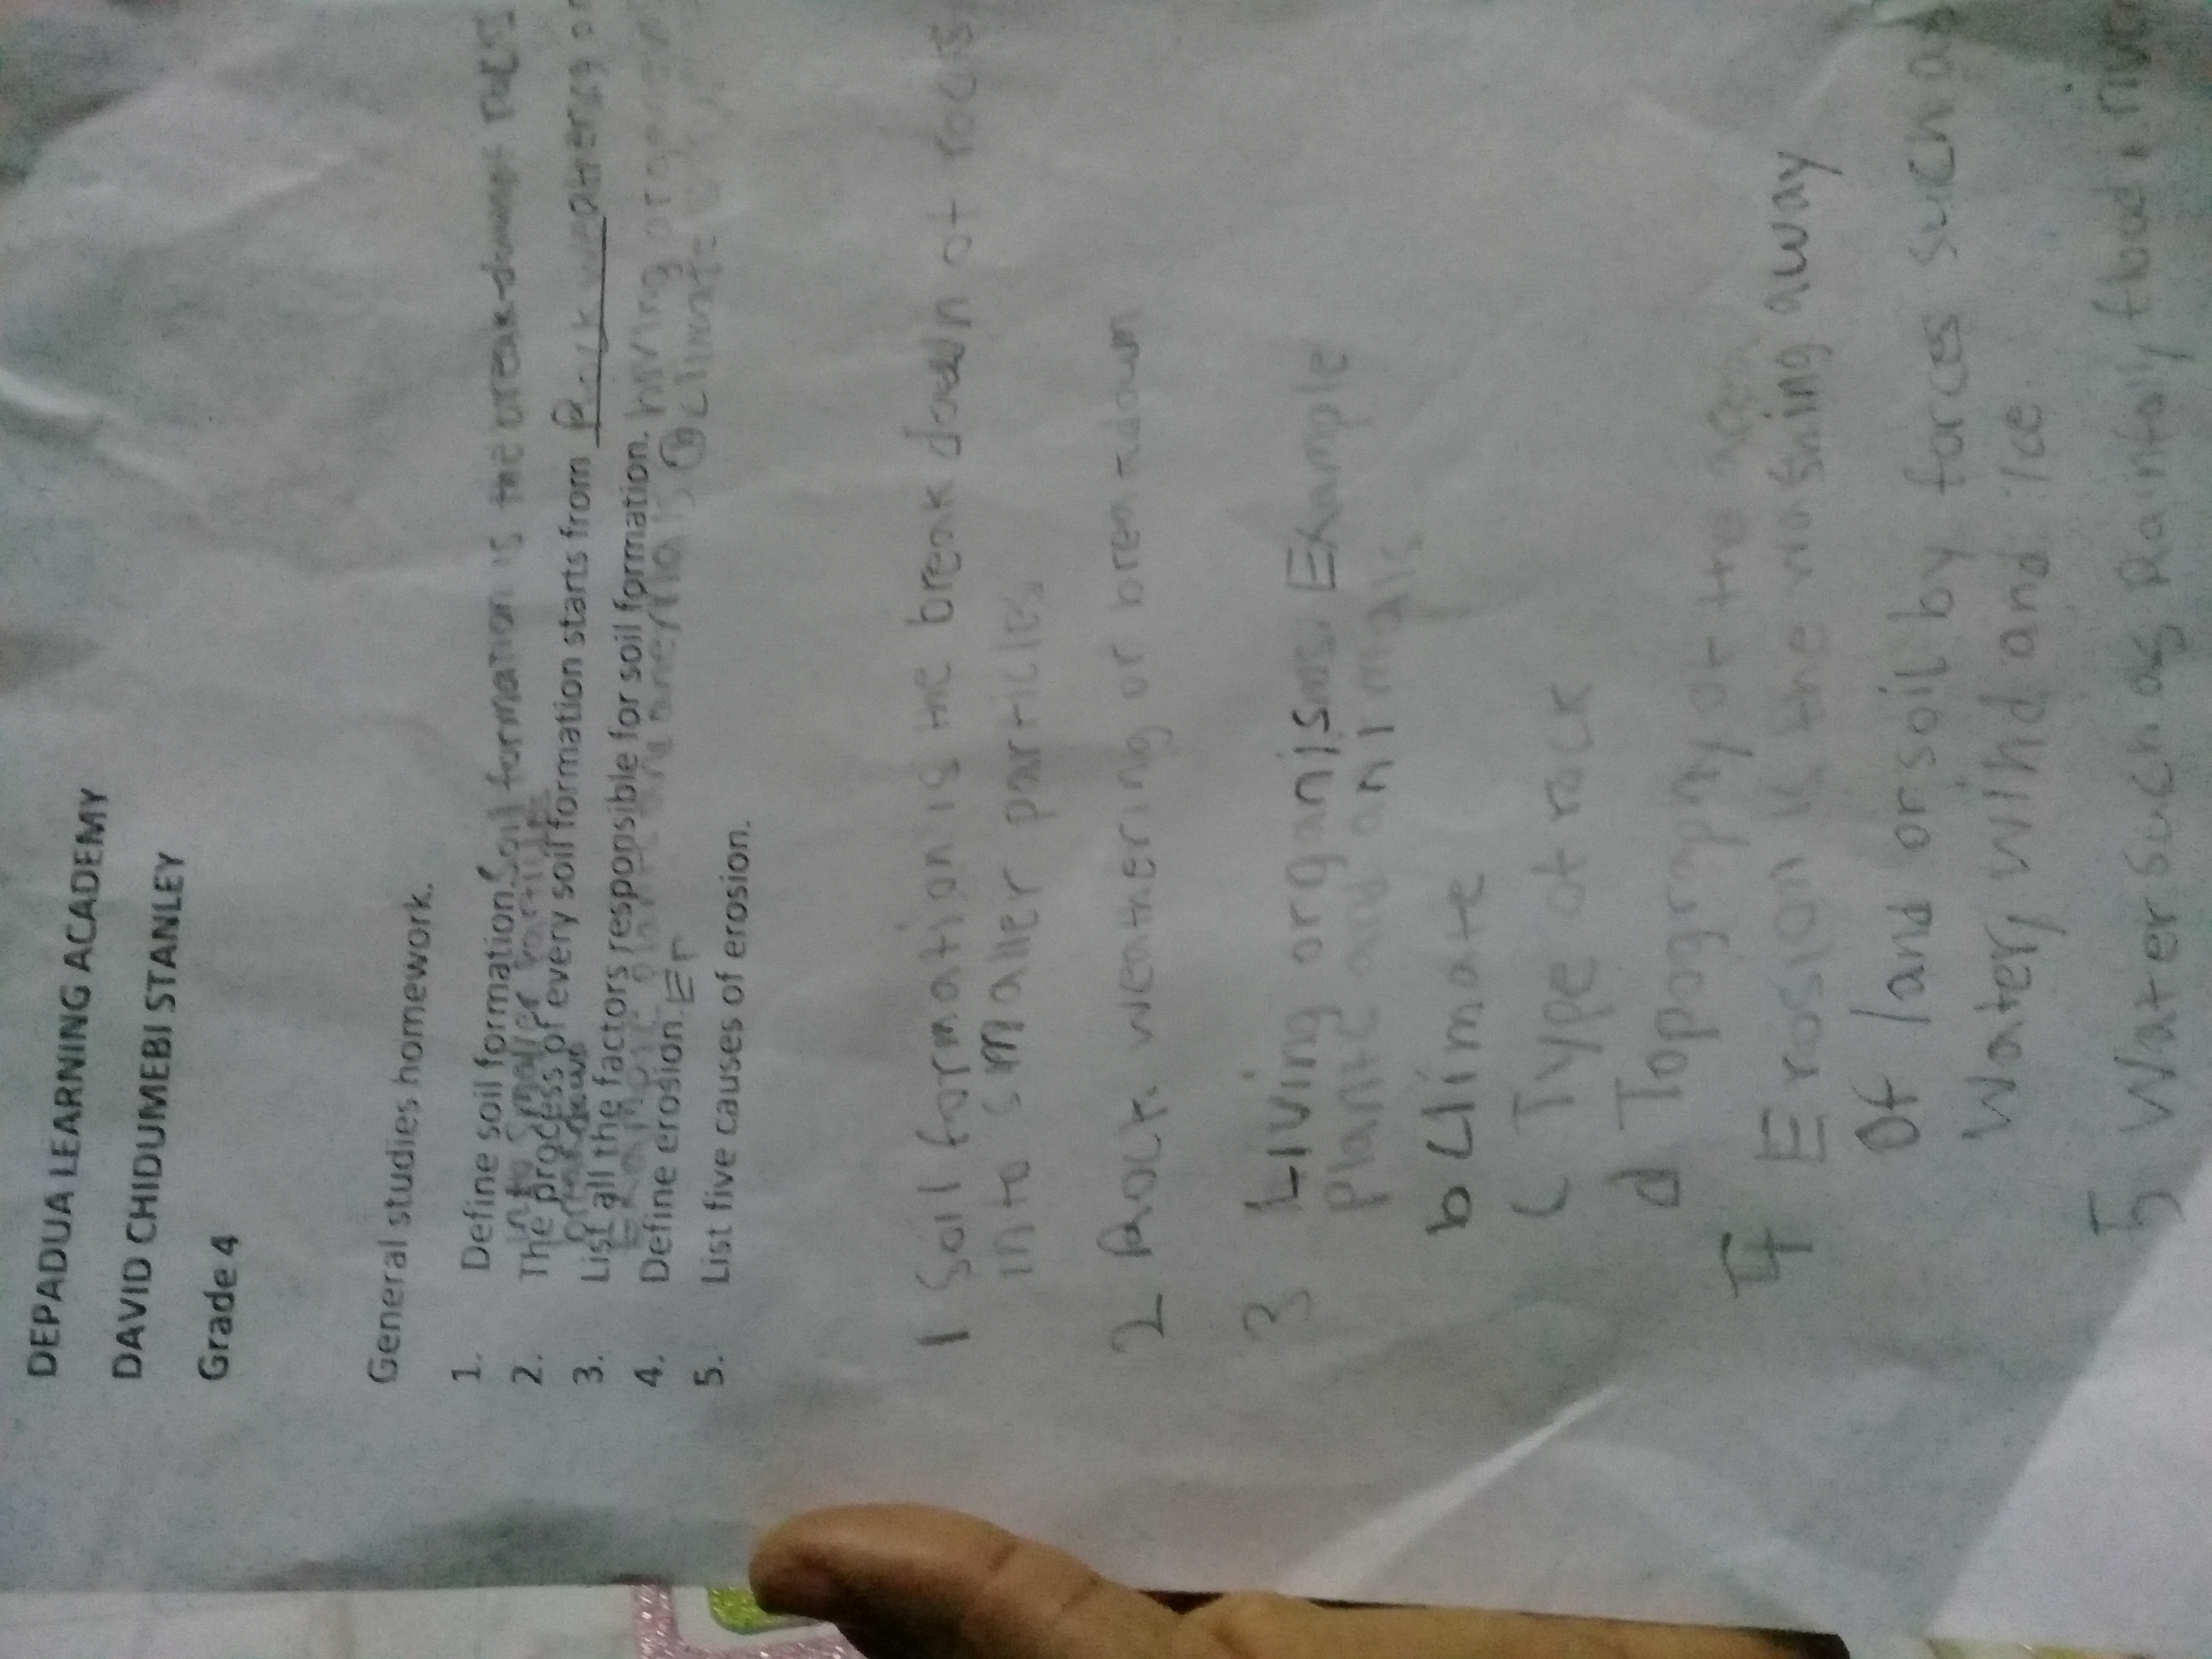 DEPADUA LEARNING ACADEMY
DAVID CHIDUMEBI STANLEY
Grade 4
General studies homework.
1. Define soil formation. Soil formation is the break-down
into smaller particle
2. The process of every soil formation starts from Rock
or breakdown
3. List all the factors responsible for soil formation. living
Example climate
4. Define erosion. Er
5. List five causes of erosion.
1 Soil formation is the break down of rocks
into smaller particles
2 Rock weathering or breakdown
3 Living organisms Example
plants and animals
b Climate
c Type of rock
d Topography of the
4 Erosion is the washing away
Of land or soil by forces such as
Water, wind, and ice
5 Water such as Rainfall, flood, river